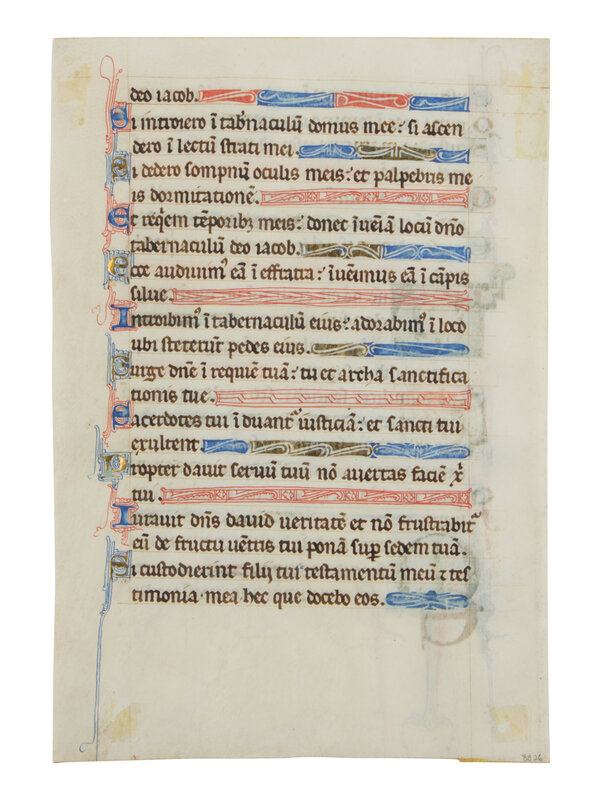 deo iacob.
Si introiero ī tab'naculū domus mee: si ascen
dero ī lectū strati mei.
Si dedero sompnū oculis meis: et palpebris me
is dormitationē.
Et reqͥem tēporibꝫ meis: donec īueīā locū dn̄o
tabernaculū deo iacob.
Ecce audiuimꝰ eā ī effrata: īuēimus eā ī cāpis
silue.
Introibimꝰ ī tabernaculū eius: adorabimꝰ ī loco
ubi steterūt pedes eius.
Surge dn̄e ī requiē tuā: tu et archa sanctifica
tionis tue.
Sacerdotes tui īduantᷣ iusticiā: et sancti tui
exultent.
Propter dauit seruū tuū nō auertas faciē xp̄i
tui.
Iurauit dn̄s dauid ueritatē et nō frustrabitᷣ
eū de fructu uētris tui ponā sup̄ sedem tuā.
Si custodierint filij tui testamentū meū ⁊ tes
timonia mea hec que docebo eos.